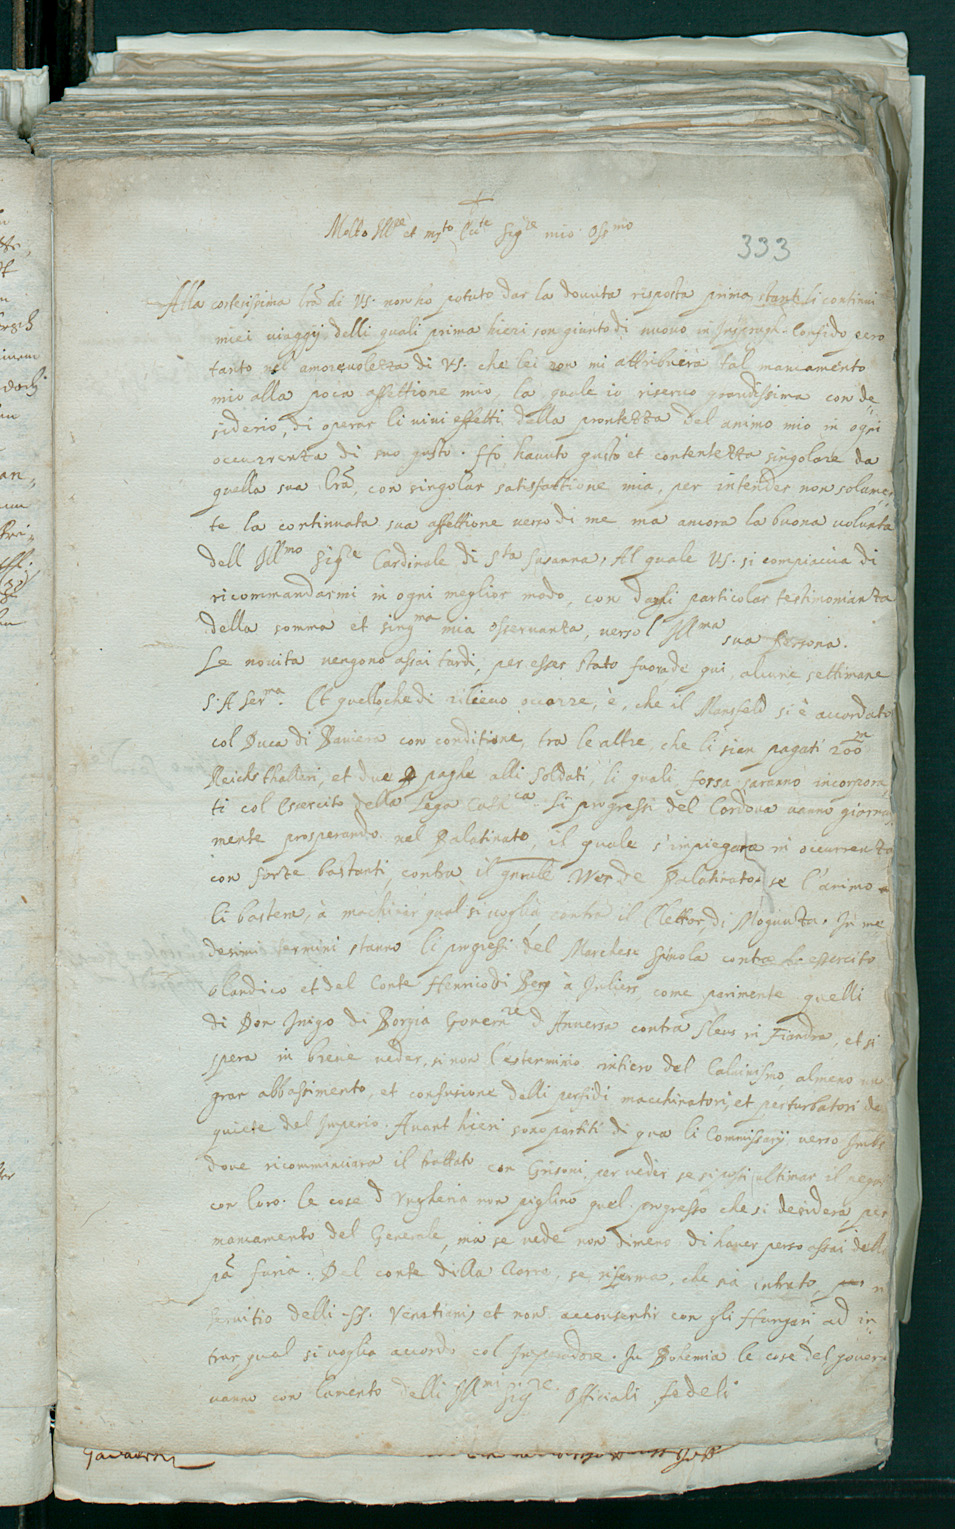 Molto Ill.re et m.to Ecc.te Sig.re mio Oss.mo
333
Alla cortesissima lrã di VS. non ho potuto dar la douuta risposta prima, stanteli continui
miei uiaggij delli quali prima hieri son giunto di nuouo in Confido pero
tanto nel amoreuolezza di VS. che lei non mi attribuera tal mancamento
mio alla poca affettione mio, la quale io riseruo grandissima con de
siderio, di operar li uiui effetti della prontezza del animo mio in ogni
occurrenza di suo gusto. Hò hauuto gusto et contentezza singolare da
quella sua lrã, con singolar satisfattione mia, per intender non solamen
te la continuata sua affettione uerso di me ma ancora la buona uolunta
dell Ill.mo Sig.e Cardinale di S.ta Susanna, Al quale VS. si compiaccia di
ricommandarmi in ogni meglior modo, con darli particolar testimonianza
della somma et sing.ma mia osseruanza, uerso l Ill.ma sua Persona.
Le nouita uengono assai tardi, per esser stato fuora de qui, alcune settimane
S. A Ser.ma. Et quello che di rilieuo occorre, è, che il Mansfeld si è accordato
col Duca di Bauiera con conditione, tra le altre, che li sien pagati 200m
Reichsthalleri, et due paghe alli soldati, li quali forsa saranno incorpora
ti col Esercito della Lega Catt.ca. Li progressi del Cordoua uanno giornal
mente prosperando nel Palatinato, il quale s'impiegara in occurrenza
con forze bastanti, contra il gnrale Palatinato, se l'animo
li bastera, à machinar qual si uoglia contra il Elettor, di Moguntza. In me
desimi termini stanno li progressi del Marchese Spinola contra lo essercito
olandico et del Conte Henrico di Berg à Juliers, come parimente quelli
di Don Inigo di Borgia Gouern.re d Anuersa contra Sleus in Fiandra, et si
spera in breue ueder, si non l'esterminio intiero del Caluinismo almeno un
gran abbassimento, et confusione delli perfidi macchinatori, et perturbatori de
quiete del Imperio. Auant hieri sono partiti di qua li Commissarij uerso
doue ricomminciara il trattato con Grisoni, per ueder se si possi ultimar il negot
con loro. Le cose d Ungheria non piglino quel progresso che si desidera per
mancamento del Generale, ma se uede non dimeno di hauer perso assai della
pã furia. Del conte della se, che sia intrato, in
seruitio delli SS. Venetiani, et non acconsentir con gli Hungari ad in
trar qual si uoglia accordo col Imperadore. In Bohemia le cose del gouerno
uanno con lamento delli Ill.mi Sig.re Officiali fedeli